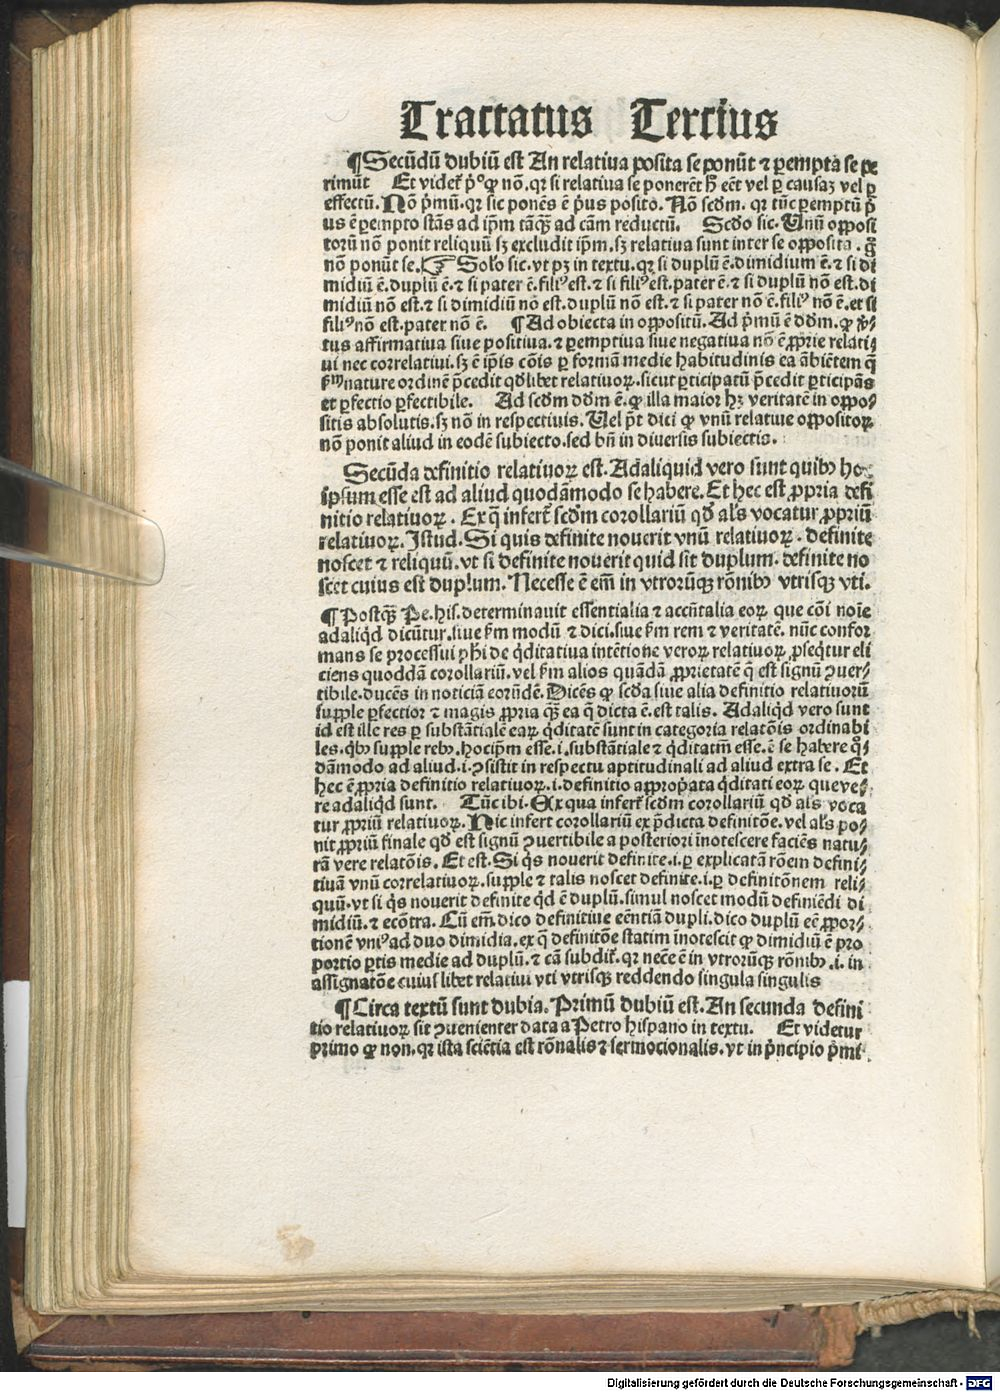 Tractatus Tercius
¶Secūdū dubiū est An relatiua posita se ponūt ⁊ ꝑempta se pe
rimūt Et videt᷑ pͦ ꝙ nō.qꝛ si relatiua se ponerēt h̄ eēt vel ꝑ causaꝫ vel ꝑ
effectū.Nō pͥmū.qꝛ sic ponēs ē pͥus posito.Nō scd̄m.qꝛ tūc ꝑemptū pͥ
us ē ꝑempto stās ad ip̄m tāqꝫ̄ ad cām reductū. Scd̄o sic.Unū opposi
torū nō ponit reliquū sꝫ excludit ip̄m.sꝫ relatiua sunt inter se opposita.g̊
nō ponūt se.☞Solo sic.vt pꝫ in textu.qꝛ si duplū ē.dimidium ē.⁊ si di
midiū ē.duplū ē.⁊ si pater ē.filiꝰ est.⁊ si filiꝰ est.pater ē.⁊ si duplū nō est.di
midiū nō est.⁊ si dimidiū nō est.duplū nō est.⁊ si pater nō ē.filiꝰ nō ē.et si
filiꝰ nō est.pater nō ē. ¶Ad obiecta in oppositū.Ad pͥmū ē dd̄m.ꝙ
tus affirmatiua siue positiua.⁊ ꝑemptiua siue negatiua nō ē ꝓprie relati/
ui nec correlatiui.sꝫ ē ip̄is cōis ꝑ formā medie habitudinis ea ābiētem q̄
nature ordinē p̄cedit qd̄libet relatiuoꝝ.sicut ꝑticipatū p̄cedit ꝑticipās
et ꝑfectio ꝑfectibile. Ad scd̄m dd̄m ē.ꝙ illa maior hꝫ veritatē in oppo/
sitis absolutis.sꝫ nō in respectiuis.Uel p̄t dici ꝙ vnū relatiue oppositoꝝ
nō ponit aliud in eodē subiecto.sed bn̄ in diuersis subiectis.
Secūda definitio relatiuoꝝ est.Adaliquid vero sunt quibꝰ hoc
ipsum esse est ad aliud quodāmodo se habere.Et hec est ꝓpria defi
nitio relatiuoꝝ.Ex q̄ infert᷑ scd̄m corollariū qd̄ al's vocatur ꝓpriū
relatiuoꝝ.Istud.Si quis definite nouerit vnū relatiuoꝝ.definite
noscet ⁊ reliquū.vt si definite nouerit quid sit duplum.definite no
scet cuius est duplum.Necesse ē em̄ in vtrorūqꝫ rōnibꝰ vtrisqꝫ vti.
¶Postqꝫ̄ Pe.his.determinauit essentialia ⁊ accn̄talia eoꝝ que cōi noīe
adaliqͥd dicūtur.siue ẜm modū ⁊ dici.siue ẜm rem ⁊ veritatē.nūc confor
mans se processui pͪi de qͥditatiua intētione veroꝝ relatiuoꝝ ꝓseqͥtur eli
ciens quoddā corollariū.vel ẜm alios quādā ꝓprietatē q̄ est signū ꝯuer/
tibile.ducēs in noticiā eorūdē.Dicēs ꝙ scd̄a siue alia definitio relatiuorū
supple ꝑfectior ⁊ magis ꝓpria qꝫ̄ ea q̄ dicta ē.est talis.Adaliqͥd vero sunt
id est ille res ꝑ substātialē eaꝝ qͥditatē sunt in categoria relatōis ordinabi
les.qͥbꝰ supple rebꝰ.hocip̄m esse.i.substātiale ⁊ qͥditatm̄ esse.ē se habere qͦ/
dāmodo ad aliud.i.ꝯsistit in respectu aptitudinali ad aliud extra se.Et
hec ē ꝓpria definitio relatiuoꝝ.i.definitio appropͥata qͥditati eoꝝ que ve/
re adaliqͥd sunt. Tūc ibi.Ex qua infert᷑ scd̄m corollariū qd̄ al's voca
tur ꝓpriū relatiuoꝝ.Hic infert corollariū ex p̄dicta definitōe.vel al's po/
nit ꝓpriū finale qd̄ est signū ꝯuertibile a posteriori īnotescere faciēs natu/
rā vere relatōis.Et est.Si qͥs nouerit definite.i.ꝑ explicatā rōem defini/
tiuā vnū correlatiuoꝝ.supple ⁊ talis noscet definite.i.ꝑ definitōnem reli/
quū.vt si qͥs nouerit definite qͥd ē duplū.simul noscet modū definiēdi di
midiū.⁊ ecōtra.Cū em̄ dico definitiue eēntiā dupli.dico duplū eē ꝓpor/
tionē vniꝰ ad duo dimidia.ex q̄ definitōe statim īnotescit ꝙ dimidiū ē pro
portio ꝑtis medie ad duplū.⁊ cā subdit᷑.qꝛ necē ē in vtrorūqꝫ rōnibꝰ.i.in
assignatōe cuiuslibet relatiui vti vtrisqꝫ reddendo singula singulis
¶Circa textū sunt dubia.Primū dubiū est.An secunda defini
tio relatiuoꝝ sit ꝯuenienter data a Petro hispano in textu. Et videtur
primo ꝙ non.qꝛ ista sciētia est rōnalis ⁊ sermocionalis.vt in pͥncipio pͥmi
Digitalisierung gefördert durch die Deutsche Forschungsgemeinschaft - DFG